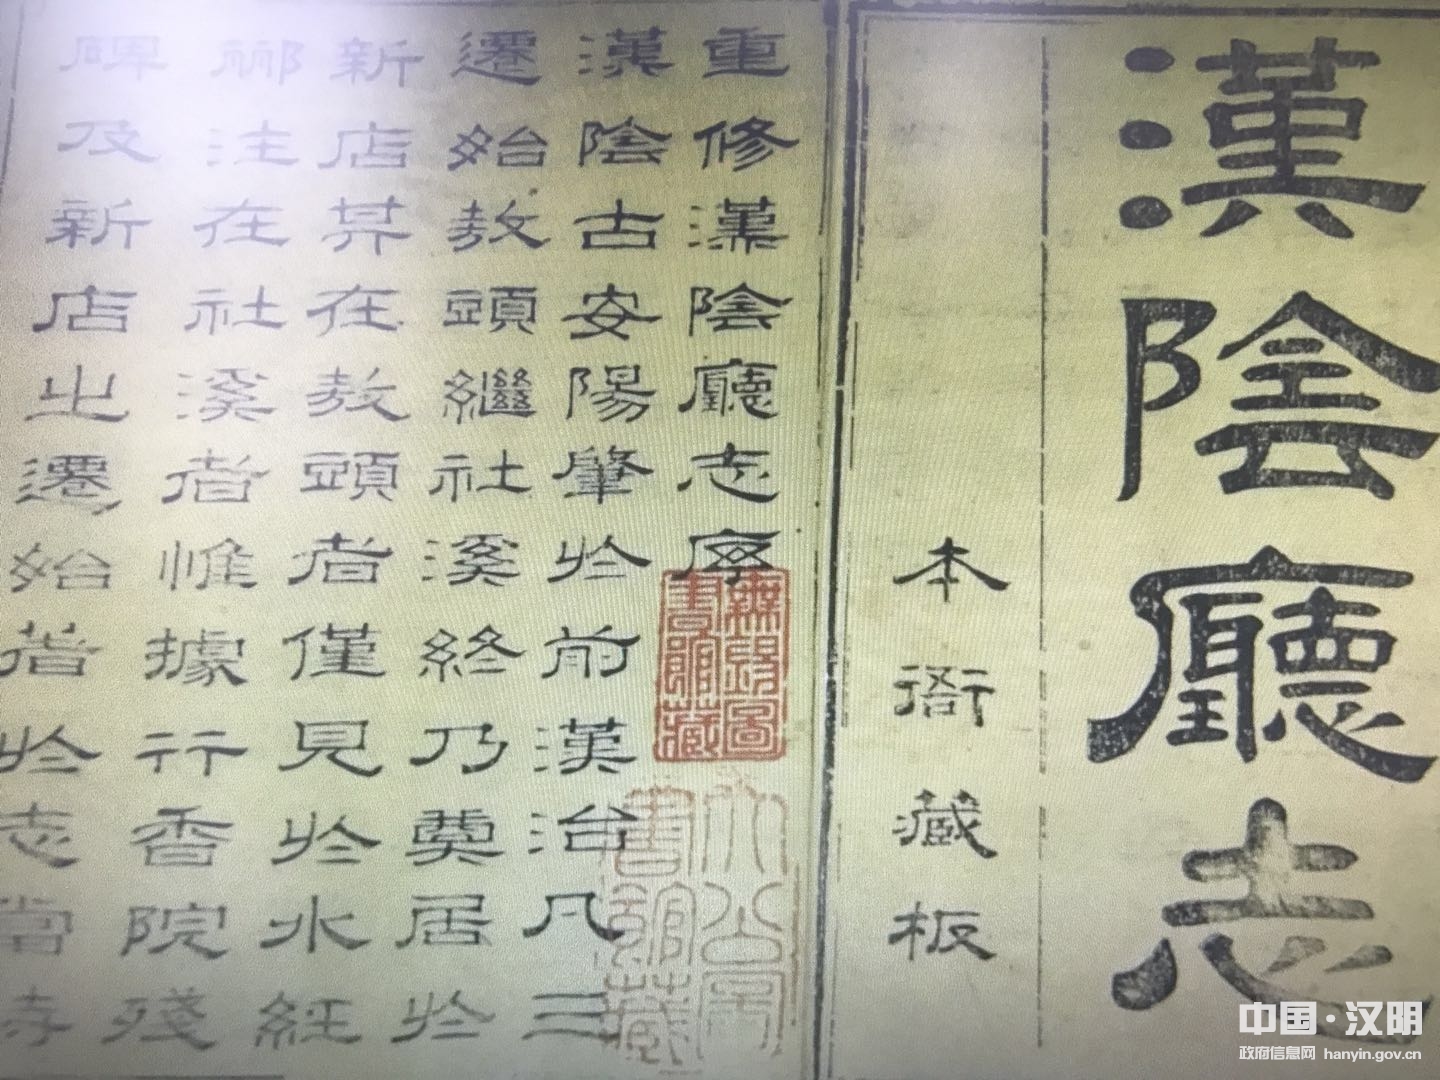 漢陰廳志
本衙藏板
重修漢陰廳志序
漢陰古安陽肇於前漢治凡三
遷始敖頭繼社溪終乃奠居於
新店其在敖頭者僅見於水經
酈注在社溪者惟據行香院殘
碑及新店之遷始著於志當
無錫圖
書館藏
大公圖
書館藏
中国·汉阴
政府信息网 hanyin.gov.cn